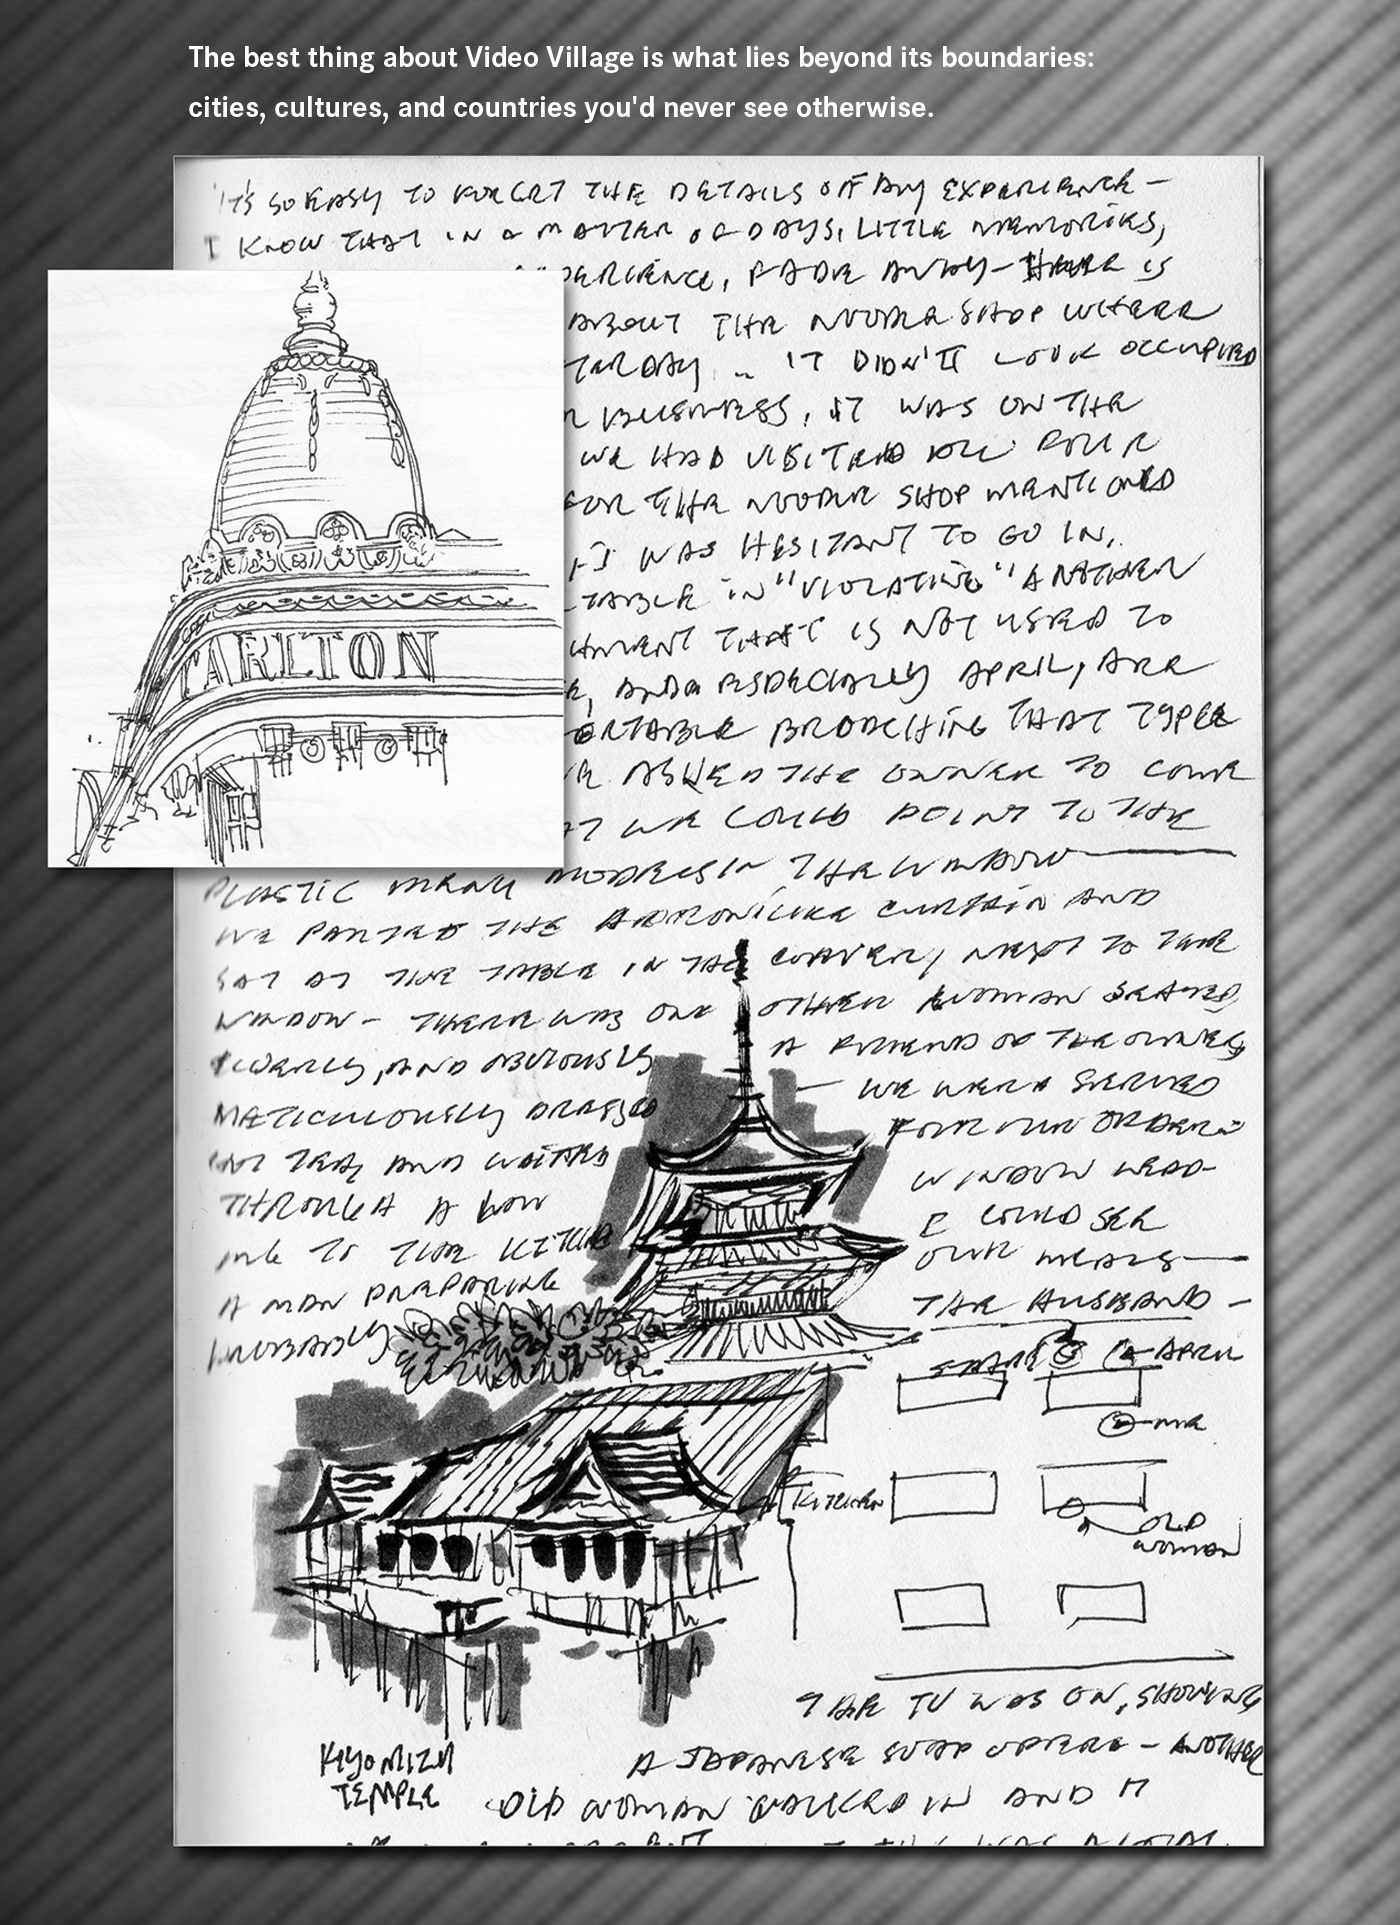 The best thing about Video Village is what lies beyond its boundaries:
cities, cultures, and countries you'd never see otherwise.
IT'S SO EASY TO FORGET THE DETAILS OF ANY EXPERIENCE —
I KNOW THAT IN A MATTER OF DAYS, LITTLE MEMORIES,
PERIENCE, FADE AWAY — THERE IS
ABOUT THE NOODLE SHOP WHERE
TERDAY .. IT DIDN'T LOOK OCCUPIED
R BUSINESS, IT WAS ON THE
WE HAD VISITED
FOR THE NOODLE SHOP MENTIONED
I WAS HESITANT TO GO IN,
TABLE IN "VIOLATING" ANOTHER
HMENT THAT IS NOT USED TO
E, AND ESPECIALLY APRIL, ARE
ORTABLE BROACHING THAT TYPE
E ASKED THE OWNER TO COME
AT WE COULD POINT TO THE
TARLTON
PLASTIC MENU MODELS IN THE WINDOW —
WE PARTED THE APRON-LIKE CURTAIN AND
SAT AT THE TABLE IN THE CORNER, NEXT TO THE
WINDOW - THERE WAS ONE OTHER WOMAN SEATED,
ELDERLY, AND OBVIOUSLY A FRIEND OF THE OWNER,
METICULOUSLY DRESSED — WE WERE SERVED
HOT TEA, AND WAITED FOR OUR ORDER -
THROUGH A LOW WINDOW LEAD-
ING TO THE KITCHEN I COULD SEE
A MAN PREPARING OUR MEALS —
PROBABLY THE HUSBAND -
APRIL
ME
KITCHEN
OLD
WOMAN
THE TV WAS ON, SHOWING
A JAPANESE SOAP OPERA - ANOTHER
OLD WOMAN WALKED IN AND
KIYOMIZU
TEMPLE